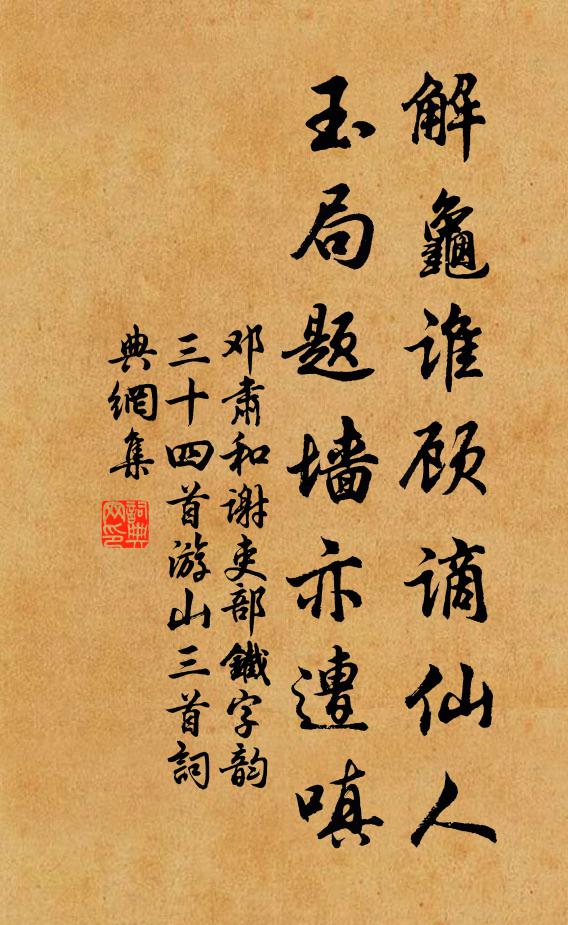 解龜谁顾谪仙人
玉局题墙亦遭嗔
邓肃和谢吏部鐵字韵
三十四首游山三首詞
典網集
詞典網印